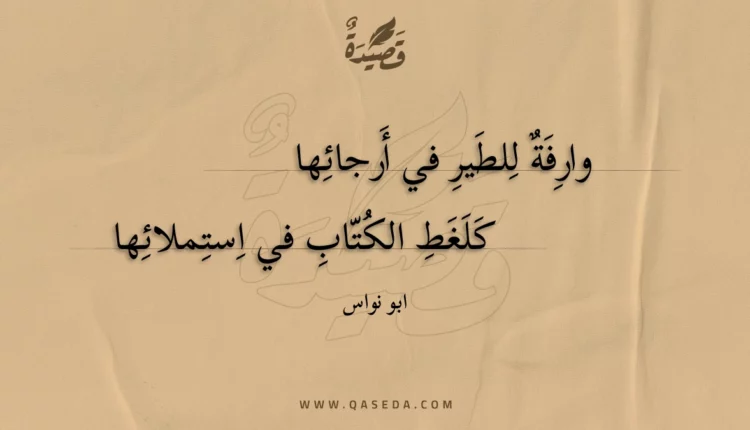 قَصِيدَةٌ
وارِفَةٌ لِلطَيرِ في أَرجائِها
كَلَغَطِ الكُتّابِ في اِستِملائِها
ابو نواس
WWW.QASEDA.COM